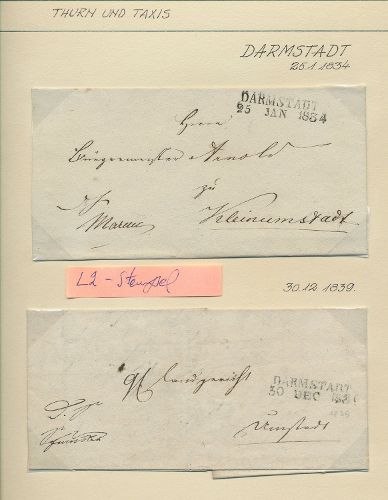 THURN UND TAXIS
DARMSTADT
25.1.1834
DARMSTADT
25 JAN 1834
Herrn
Bürgermeister Arnold
zu
Kleinumstadt
L2-Stempel
30.12.1839.
DARMSTADT
30 DEC 183
1839
Landgericht
Umstadt